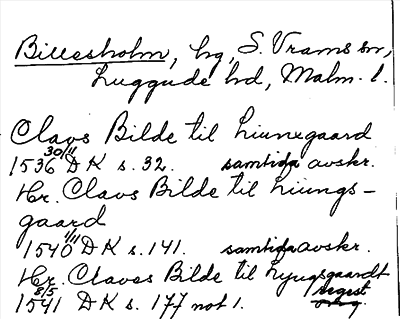 Billesholm, hg, S. Vrams sn,
Luggude hd, Malm. l.
Claos Bilde til Liunxgaard
1536 30/11 DK s. 32. samtida avskr.
Hr. Claos Bilde til Liungs-
gaard
1540 1/11 DK s. 141. samtida avskr.
Hr. Claoes Bilde til Lyungsgaardt
1541 8/5 DK s. 177 not 1. regest